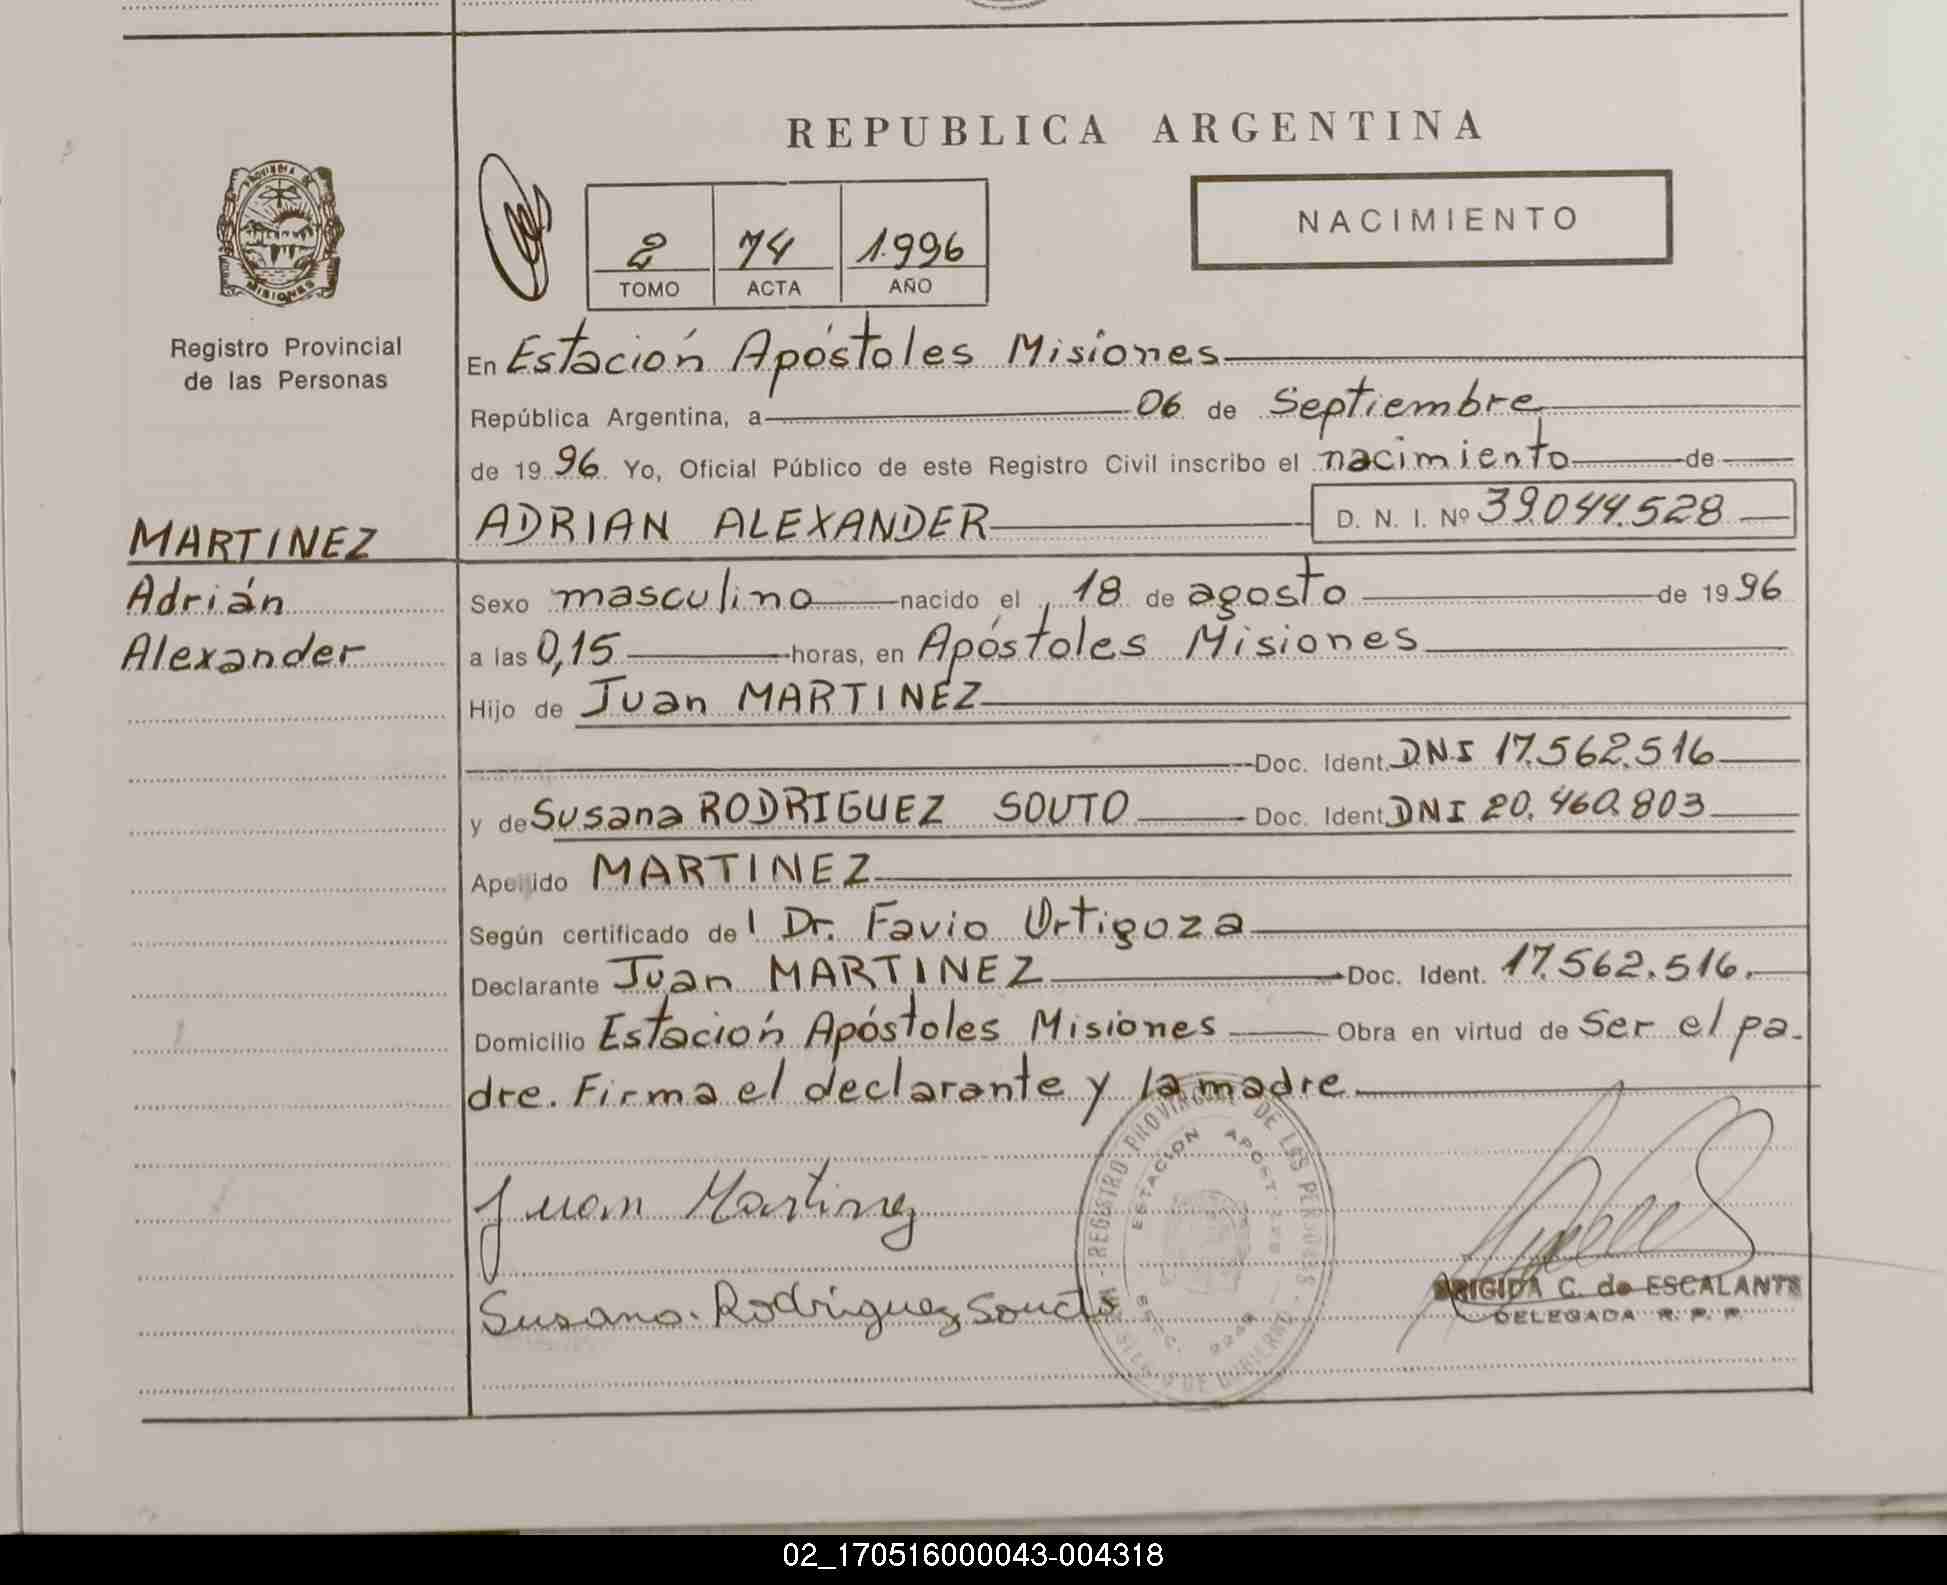 REPUBLICA ARGENTINA
PROVINCIA DE
MISIONES
Registro Provincial
de las Personas
2 74 1996
TOMO ACTA AÑO
NACIMIENTO
En Estación Apóstoles Misiones
República Argentina, a 06 de Septiembre
de 19 96 Yo, Oficial Público de este Registro Civil inscribo el nacimiento de
ADRIAN ALEXANDER D. N. I. Nº 39.044.528
MARTINEZ
Adrián
Alexander
Sexo masculino nacido el 18 de agosto de 19 96
a las 0,15 horas, en Apóstoles Misiones
Hijo de Juan MARTINEZ
Doc. Ident. DNI 17.562.516
y de Susana RODRIGUEZ SOUTO Doc. Ident. DNI 20.460.803
Apellido MARTINEZ
Según certificado de l Dr. Favio Ortigoza
Declarante Juan MARTINEZ Doc. Ident. 17.562.516.
Domicilio Estación Apóstoles Misiones Obra en virtud de Ser el pa-
dre. Firma el declarante y la madre
Juan Martinez
Susana Rodriguez Souto
REGISTRO PROVINCIAL DE LAS PERSONAS
ESTACION APOST.
BRIGIDA C. de ESCALANTE
DELEGADA R. P. P.
02_170516000043-004318